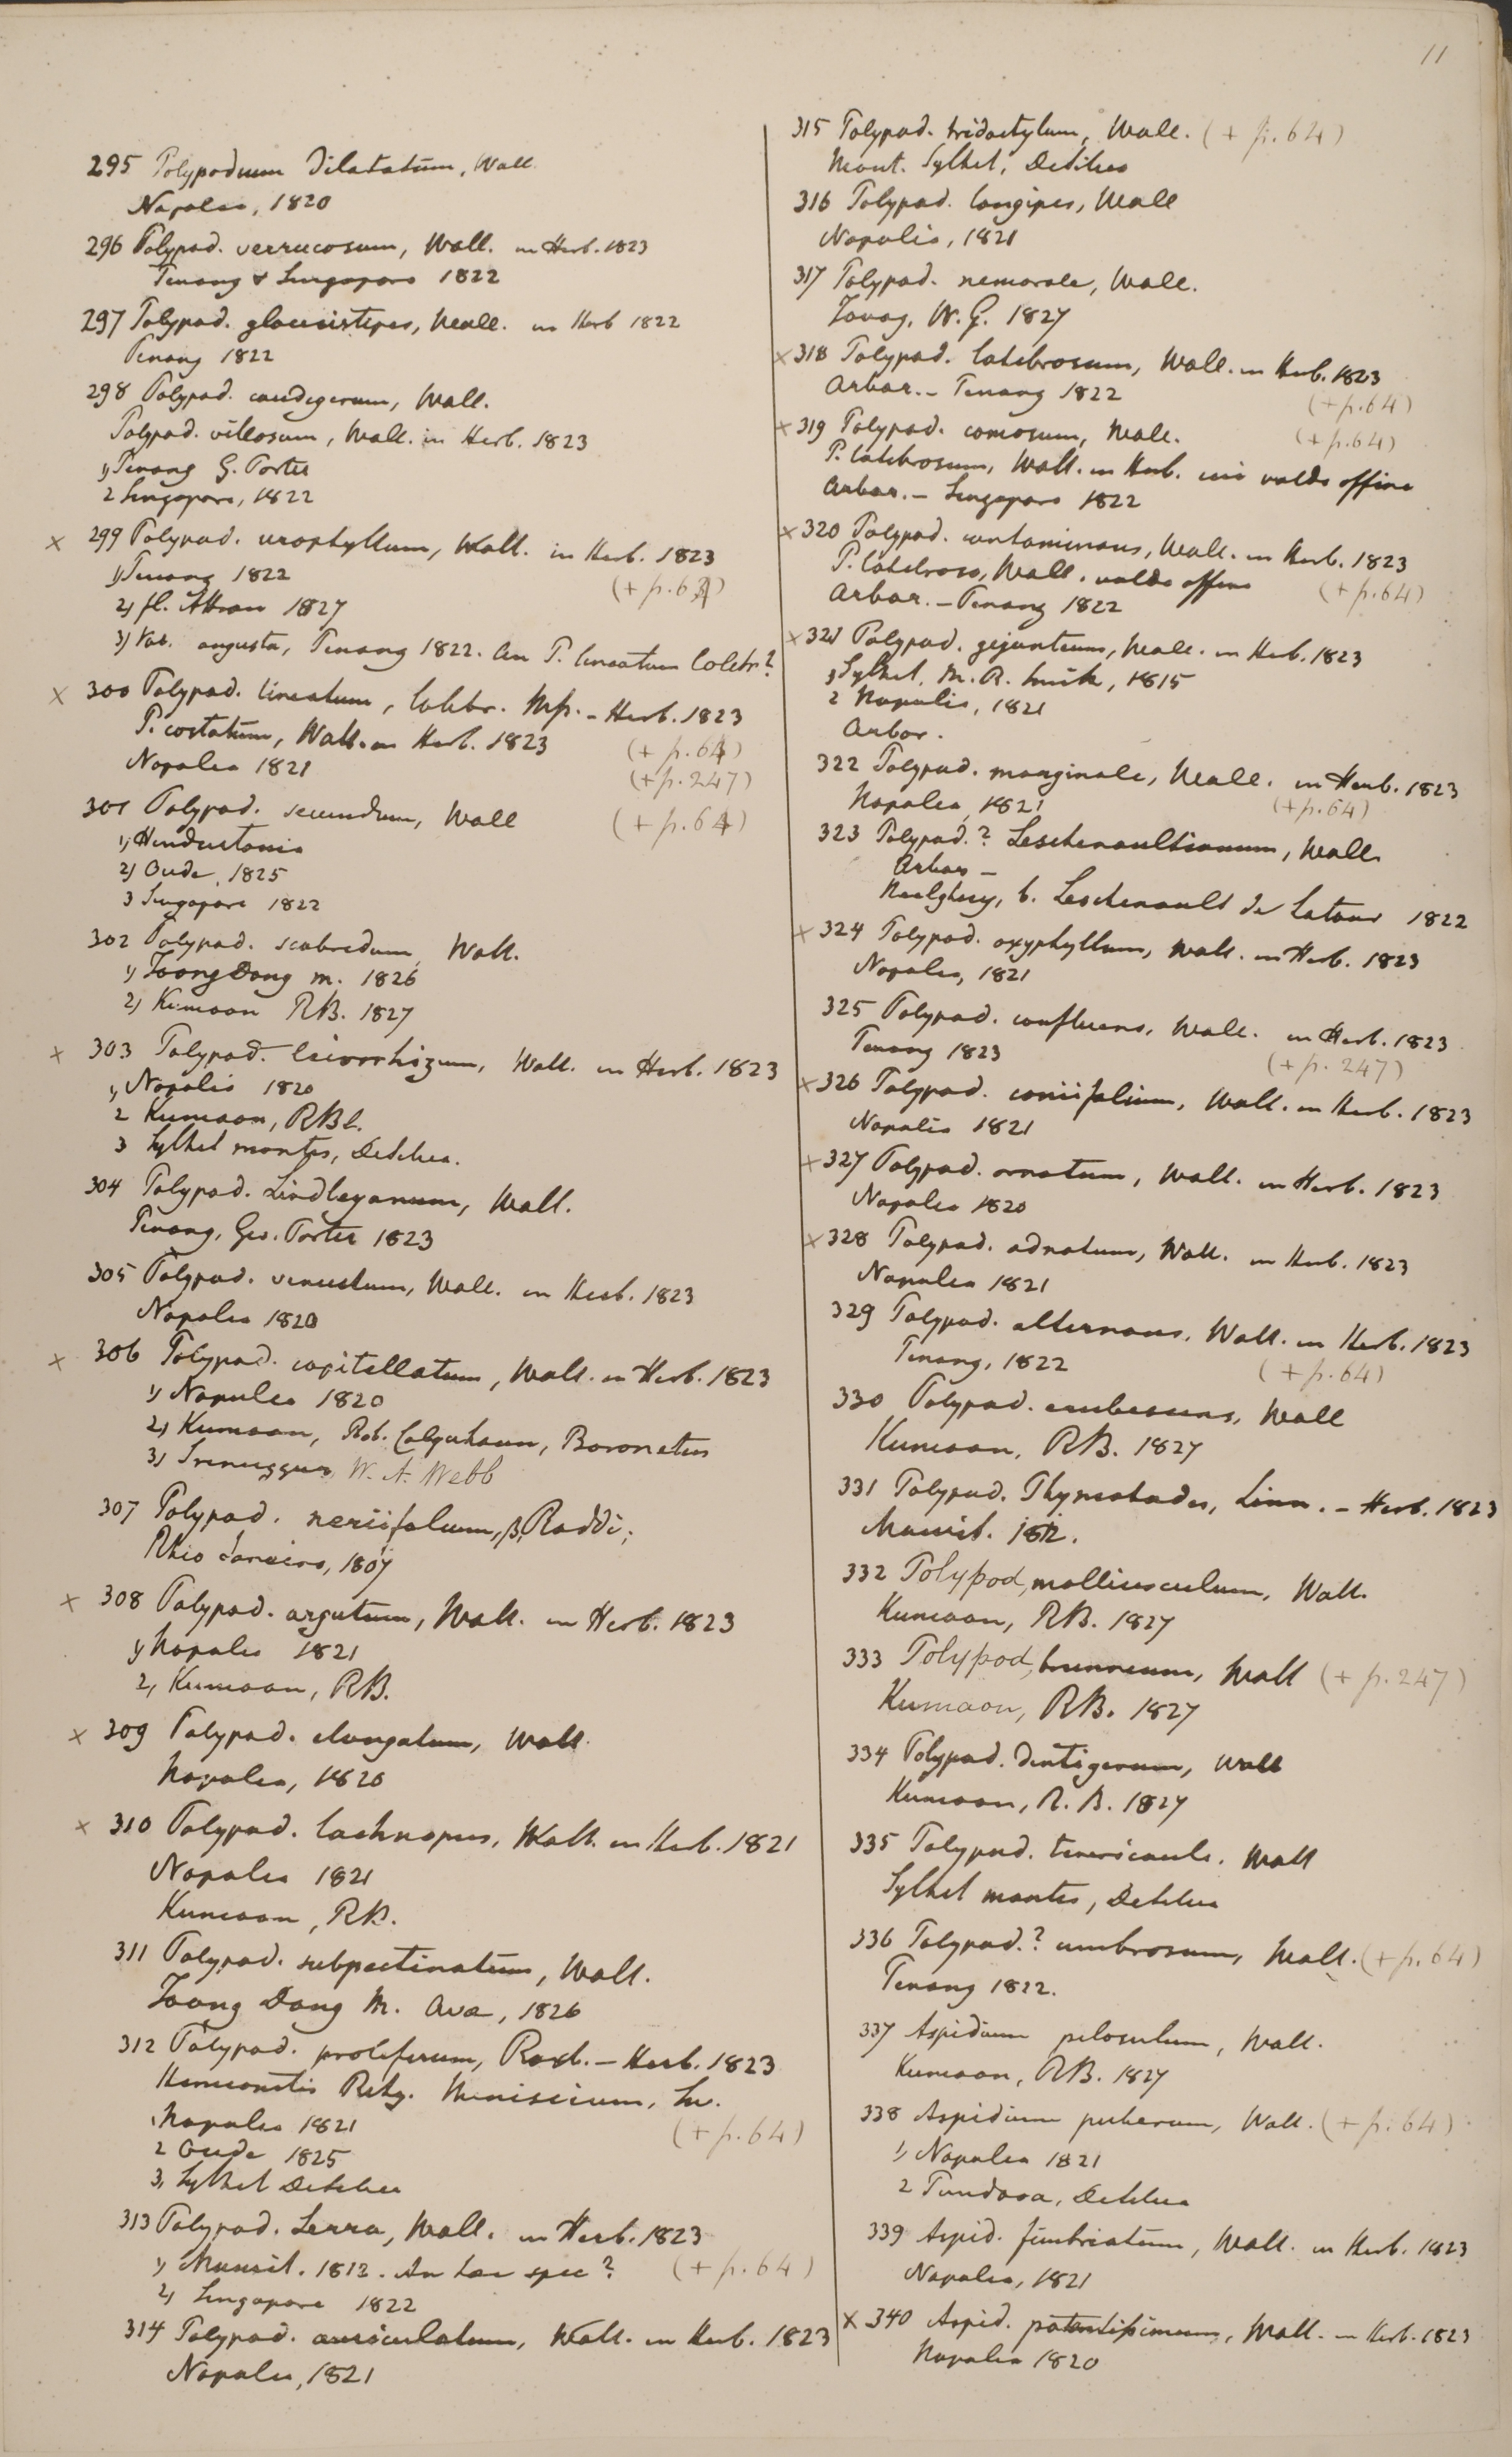 11
295 Polypodium dilatatum, Wall.
Napalia, 1820
296 Polypod. verrucosum, Wall. in Herb. 1823
Penang & Singapore 1822
297 Polypod. glaucistipes, Wall. in Herb 1822
Penang 1822
298 Polypod. caudigerum, Wall.
Polypod. villosum, Wall. in Herb. 1823
1) Penang G. Porter
2 Singapore, 1822
x 299 Polypod. urophyllum, Wall. in Herb. 1823
1) Penang 1822
(+ p. 64)
2) fl. Attran 1827
3) Var. angusta, Penang 1822. An P. lineatum Colebr?
x 300 Polypod. lineatum, Colebr. Mss. - Herb. 1823
P. costatum, Wall. in Herb. 1823 (+ p. 64)
Napalia 1821 (+ p. 247)
301 Polypod. secundum, Wall (+ p. 64)
1) Hindustania
2) Oude, 1825
3 Singapore 1822
302 Polypod. scabridum, Wall.
1) Toong Dong m. 1826
2) Kumaon RB. 1827
x 303 Polypod. leiorrhizum, Wall. in Herb. 1823
1) Napalia 1820
2 Kumaon, RBl.
3 Sylhet montes, DeSilva.
304 Polypod. Lindleyanum, Wall.
Penang, Geo. Porter 1823
305 Polypod. venustum, Wall. in Herb. 1823
Napalia 1820
x 306 Polypod. capitellatum, Wall. in Herb. 1823
1) Napalia 1820
2) Kumaon, Rob. Colquhoun, Baronetus
3) Srenuggur W. A. Webb
307 Polypod. neriifolium, β, Raddi;
Rhio Janeiro, 1807
x 308 Polypod. argutum, Wall. in Herb. 1823
1) Napalia 1821
2, Kumaon, RB.
x 309 Polypod. elongatum, Wall.
Napalia, 1820
x 310 Polypod. lachnopus, Wall. in Herb. 1821
Napalia 1821
Kumaon, RB.
311 Polypod. subpectinatum, Wall.
Toong Dong M. Ava, 1826
312 Polypod. proliferum, Roxb. - Herb. 1823
Hemionitis Retz. Meniscium, Sw.
1 Napalia 1821 (+ p. 64)
2 Oude 1825
3, Sylhet DeSilva
313 Polypod. Serra, Wall. in Herb. 1823
1) Maurit. 1812. An hac spec? (+ p. 64)
2) Singapore 1822
314 Polypod. auriculatum, Wall. in Herb. 1823
Napalia, 1821
315 Polypod. tridactylum, Wall. (+ p. 64)
Mont. Sylhet, DeSilva
316 Polypod. longipes, Wall
Napalia, 1821
317 Polypod. nemorale, Wall.
Tavoy, W. G. 1827
x 318 Polypod. latebrosum, Wall. in Herb. 1823
Arbor. - Penang 1822 (+ p. 64)
x 319 Polypod. comosum, Wall. (+ p. 64)
P. latebrosum, Wall. in Herb. cui valde affine
Arbor. - Singapore 1822
x 320 Polypod. contaminans, Wall. in Herb. 1823
P. latebroso, Wall. valde affine (+ p. 64)
Arbor. - Penang 1822
x 321 Polypod. giganteum, Wall. in Herb. 1823
1) Sylhet, M. R. Smith, 1815
2 Napalia, 1821
Arbor.
322 Polypod. marginale, Wall. in Herb. 1823
Napalia, 1821 (+ p. 64)
323 Polypod.? Leschenaultianum, Wall.
Arbor -
Neelghery, b. Leschenault de Latour 1822
x 324 Polypod. oxyphyllum, Wall. in Herb. 1823
Napalia, 1821
325 Polypod. confluens, Wall. in Herb. 1823
Penang 1823 (+ p. 247)
x 326 Polypod. coniifolium, Wall. in Herb. 1823
Napalia 1821
x 327 Polypod. ornatum, Wall. in Herb. 1823
Napalia 1820
x 328 Polypod. adnatum, Wall. in Herb. 1823
Napalia 1821
329 Polypod. alternans, Wall. in Herb. 1823
Penang, 1822 (+ p. 64)
330 Polypod. erubescens, Wall
Kumaon, RB. 1827
331 Polypod. Phymatodes, Linn. - Herb. 1823
Maurit. 1812.
332 Polypod, molliusculum, Wall.
Kumaon, RB. 1827
333 Polypod, brunneum, Wall (+ p. 247)
Kumaon, RB. 1827
334 Polypod. dentigerum, Wall
Kumaon, R. B. 1827
335 Polypod. tenericaule, Wall
Sylhet montes, DeSilva
336 Polypod.? umbrosum, Wall. (+ p. 64)
Penang 1822.
337 Aspidium pilosulum, Wall.
Kumaon, RB. 1827
338 Aspidium puberum, Wall. (+ p. 64)
1) Napalia 1821
2 Pundooa, DeSilva
339 Aspid. fimbriatum, Wall. in Herb. 1823
Napalia, 1821
x 340 Aspid. patentissimum, Wall. in Herb. 1823
Napalia 1820